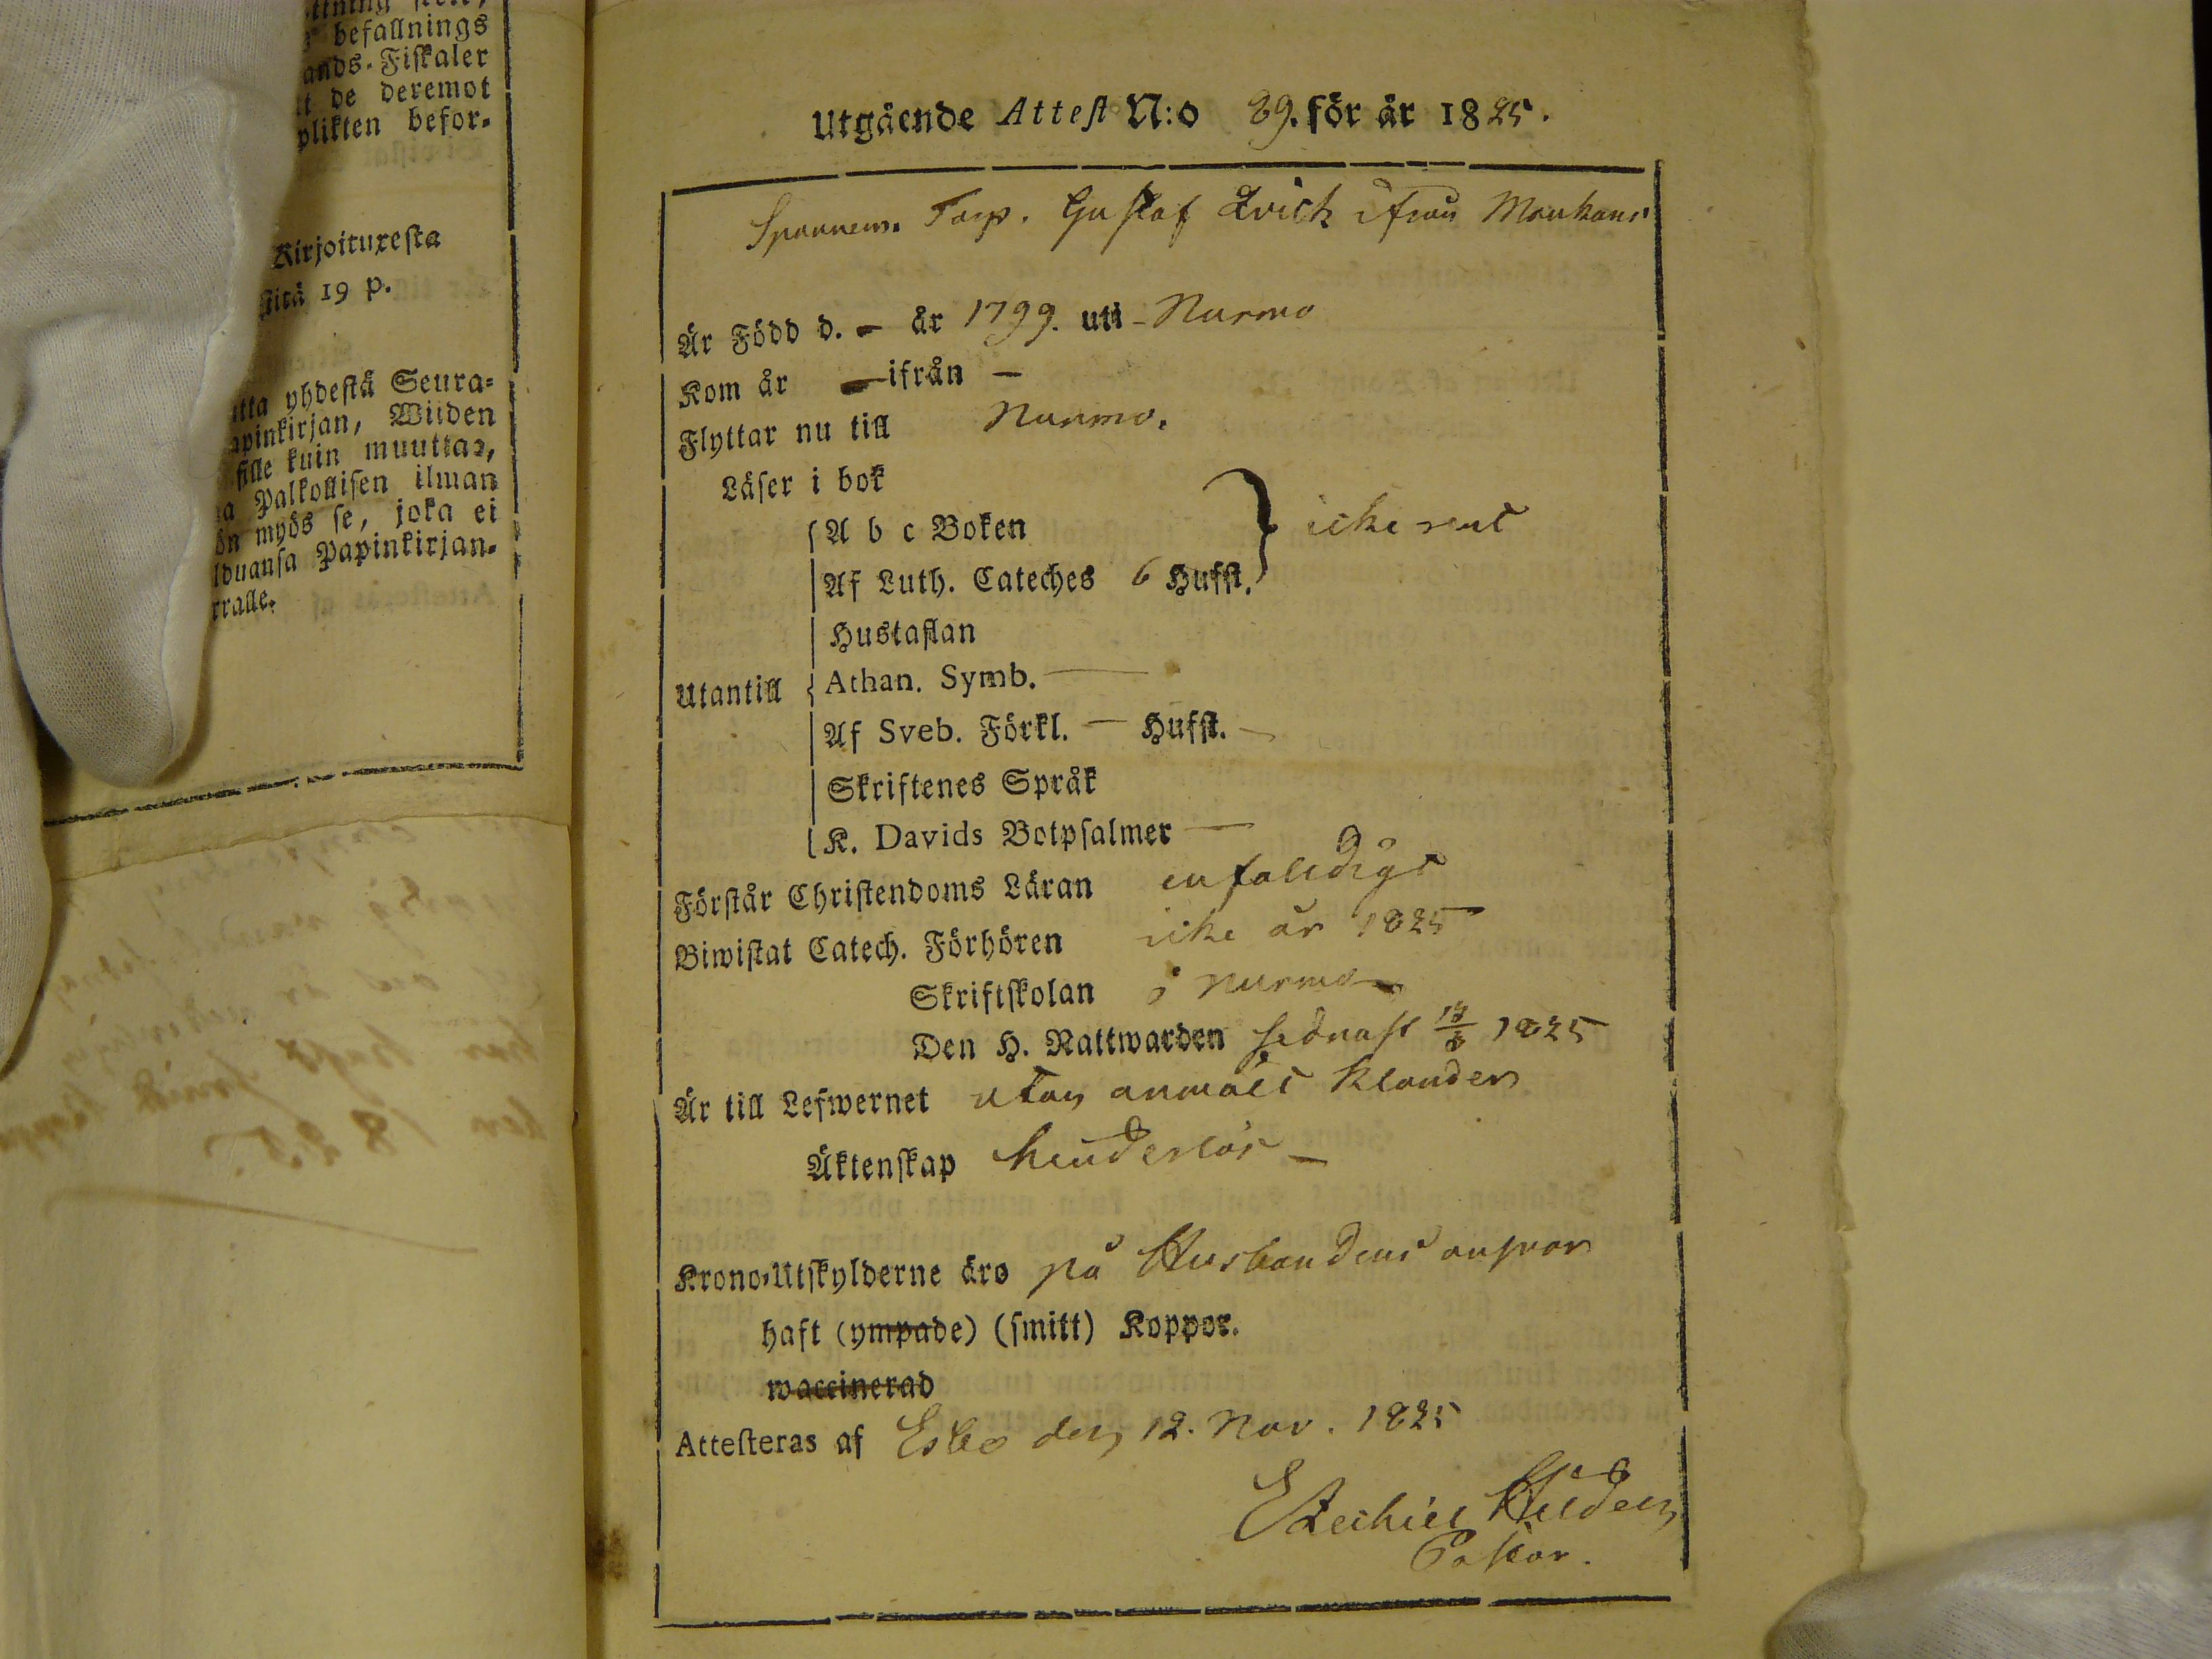 befallnings
ands-Fiskaler
de deremot
plikten befor-
Kirjoituxesta
19 p.
yhdestä Seura-
apinkirjan, Wiiden
sille kuin muuttaa,
Palkollisen ilman
myös se, joka ei
Papinkirjan-
Utgående Attest N:o 89. för år 1825.
Torp. Gustaf Qvick ifrån Mankans
Är Född d. - år 1799. uti - Nurmo
Kom år - ifrån -
Flyttar nu till Nurmo.
Läser i bok
A b c Boken
icke rent
Af Luth. Cateches 6 Hufst.
Hustaflan
Utantill
Athan. Symb. -
Af Sveb. Förkl. - Hufst. -
Skriftenes Språk
K. Davids Botpsalmer -
Förstår Christendoms Läran enfaldigt
Biwistat Catech. Förhören icke år 1825
Skriftskolan i Nurmo
Den H. Nattwarden sednast 1825
Är till Lefwernet utan anmält klander
Äktenskap hinderlös -
Krono-Utskylderne äro på Husbondens answar
haft (ympade) (smitt) Koppor.
waccinerad
Attesteras af Esbo den 12. Nov. 1825
Ezechiel Hildeen
Pastor.